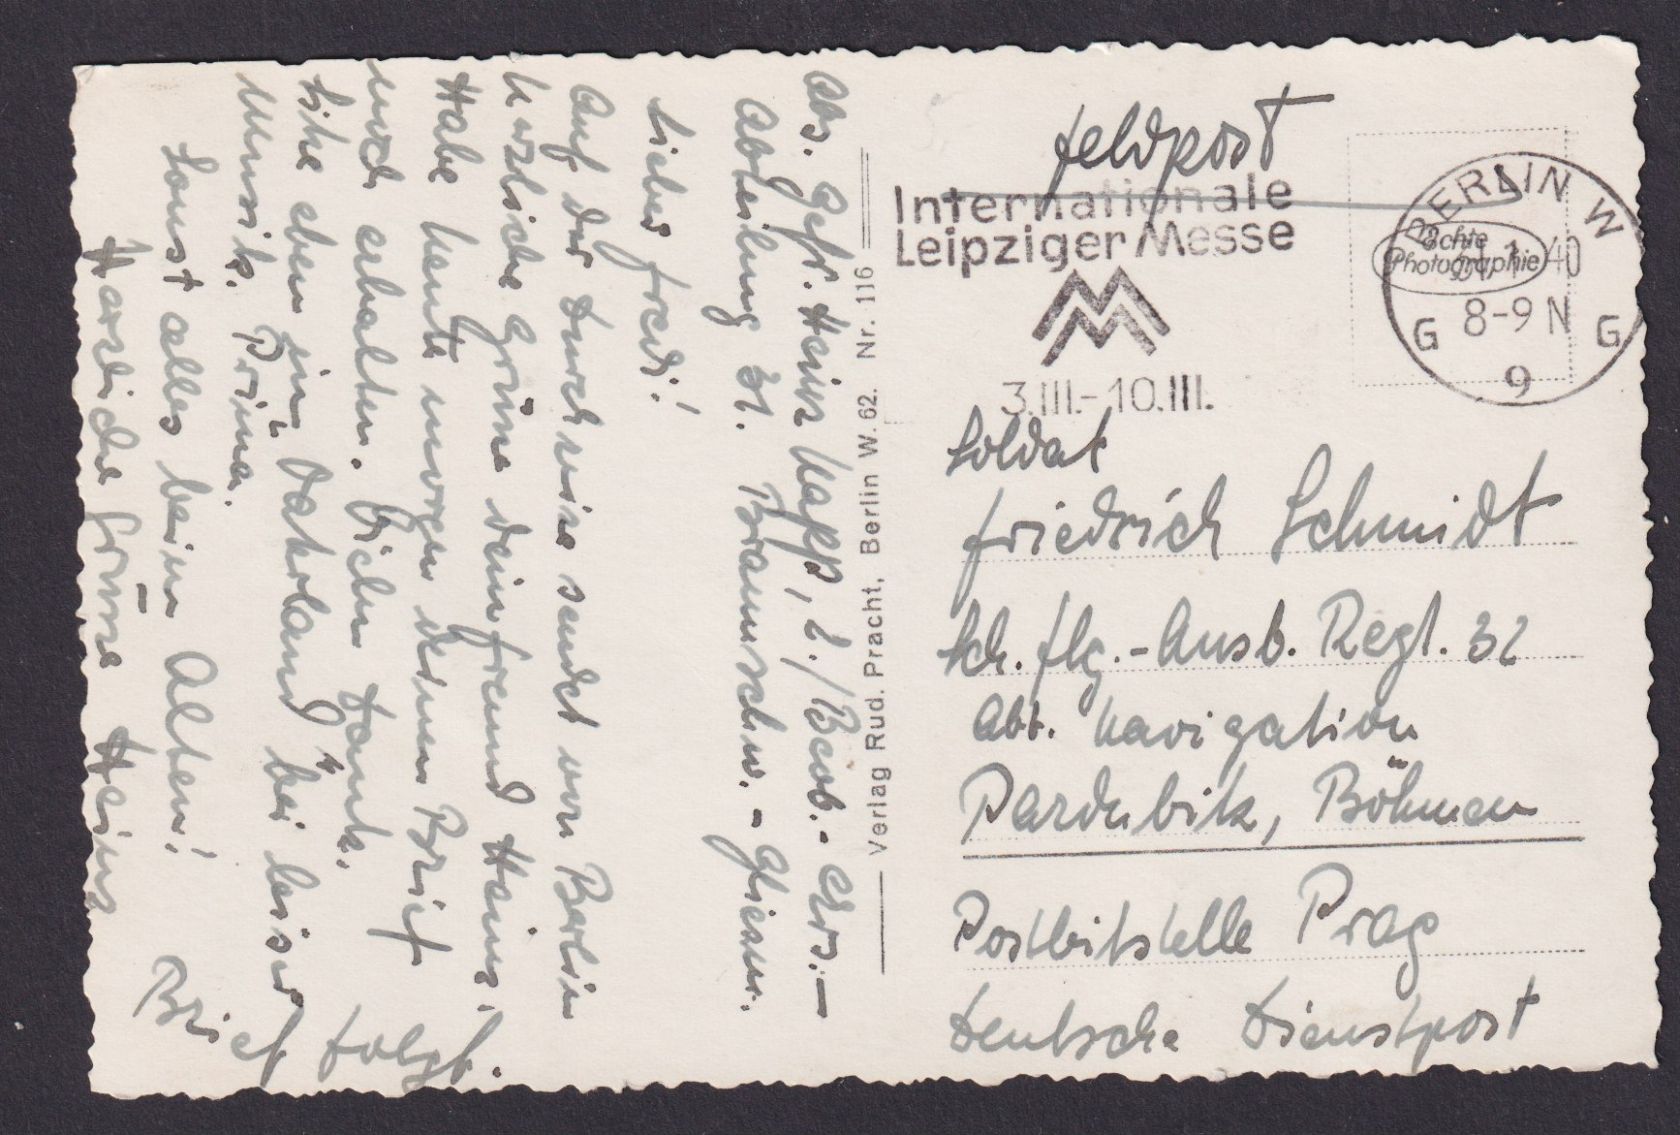 Feldpost
Internationale
Leipziger Messe
3.III.–10.III.
BERLIN W
1.40
8-9 N
G G
9
Echte
Photographie
Soldat
Friedrich Schmidt
Sch. Flg.-Ausb. Regt. 32
Abt. Navigation
Pardubitz, Böhmen
Postleitstelle Prag
Deutsche Dienstpost
Verlag Rud. Pracht, Berlin W. 62. Nr. 116
Abs. Gefr. Heinz Kapp, 2./Beob.-Ers.-
Abteilung 31. Braunschw.-Gliesm.
Lieber Fredi!
Auf der Durchreise sendet von Berlin
herzliche Grüße dein Freund Heinz.
Habe heute morgen deinen Brief
noch erhalten. Vielen Dank.
Sitze eben im „Vaterland“ bei leiser
Musik. Prima.
Sonst alles beim Alten!
Herzliche Grüße Heinz
Brief folgt.